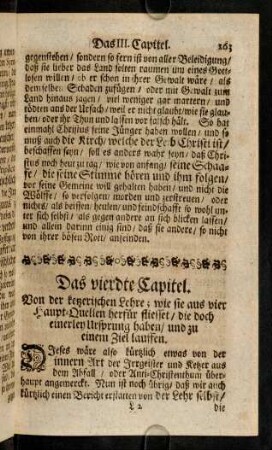 Das III. Capitel. 263
gegenstehen / sondern so fern ist von aller Beleidigung /
daß sie lieber das Land solten raumen um eines Gott-
losen willen / ob er schon in ihrer Gewalt wäre / als
demselben Schaden zufügen / oder mit Gewalt zum
Land hinaus jagen / viel weniger gar martern / und
tödten aus der Ursach / weil er nicht glaubt / wie sie glau-
ben / oder ihr Thun und lassen vor falsch hält. So hat
einmahl Christus seine Jünger haben wollen / und so
muß auch die Kirch / welche der Leib Christi ist /
beschaffen seyn / soll es anders wahr seyn / daß Chri-
stus noch heut zu tag / wie von anfang / seine Schaaf-
fe / die seine Stimme hören und ihm folgen /
vor seine Gemeine will gehalten haben / und nicht die
Wölffe / so verfolgen / morden und zerstreuen / oder
welche / als beissen / hertz / und feindschafft so wohl un-
ter sich selbst / als gegen andere an sich blicken lassen /
und allein darinn einig sind / daß sie andere / so nicht
von ihrer bösen Rott / anfeinden.
Das vierdte Capitel.
Von der ketzerischen Lehre; wie sie aus vier
Haupt-Quellen herfür fliesset / die doch
einerley Ursprung haben / und zu
einem Ziel lauffen.
Dieses wäre also kürtzlich etwas von der
innern Art der Irrgeister und Ketzer aus
dem Abfall / oder Anti-Christenthum über-
haupt angemerckt. Nun ist noch übrig / daß wir auch
kürtzlich einen Bericht erstatten von der Lehr selbst /
L 2 die